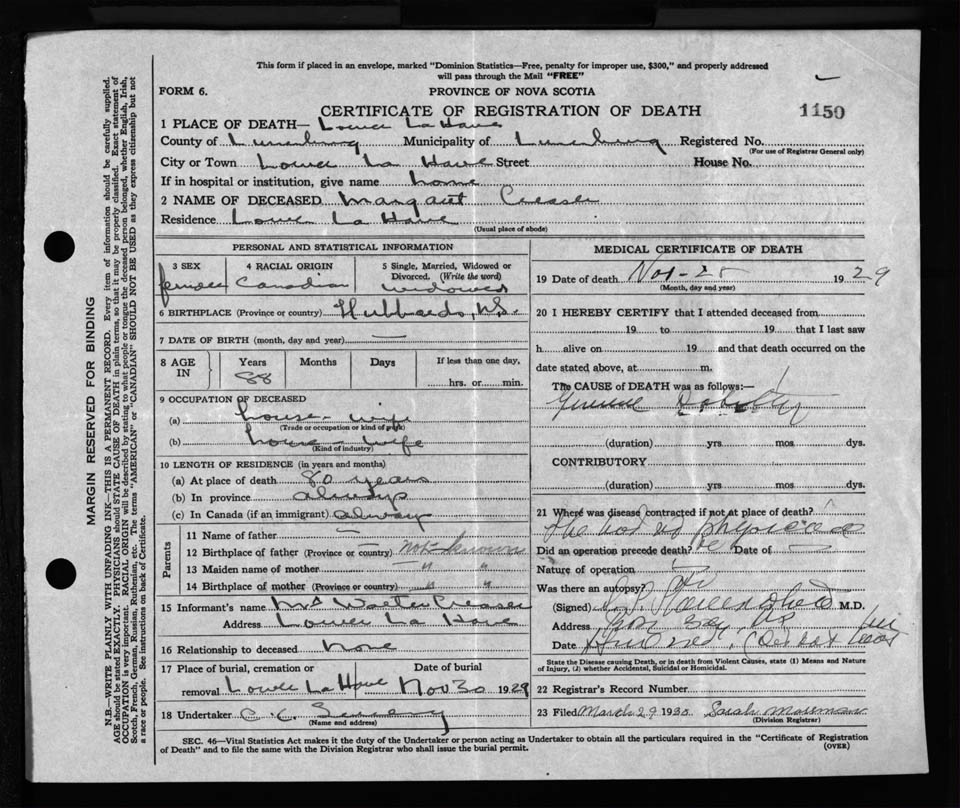 This form if placed in an envelope, marked "Dominion Statistics—Free, penalty for improper use, $300," and properly addressed
will pass through the Mail "FREE"
FORM 6. PROVINCE OF NOVA SCOTIA
CERTIFICATE OF REGISTRATION OF DEATH 1150
1 PLACE OF DEATH— Lower La Have
County of Lunenburg Municipality of Lunenburg Registered No.
(For use of Registrar General only)
City or Town Lower La Have Street House No.
If in hospital or institution, give name home
2 NAME OF DECEASED Margaret Creaser
Residence Lower La Have
(Usual place of abode)
PERSONAL AND STATISTICAL INFORMATION
3 SEX 4 RACIAL ORIGIN 5 Single, Married, Widowed or
Divorced. (Write the word)
female Canadian widowed
6 BIRTHPLACE (Province or country) Hubbards, N.S.
7 DATE OF BIRTH (month, day and year) —
8 AGE IN Years Months Days If less than one day,
88 hrs. or min.
9 OCCUPATION OF DECEASED
(a) house-wife
(Trade or occupation or kind of work)
(b) house-wife
(Kind of industry)
10 LENGTH OF RESIDENCE (in years and months)
(a) At place of death 80 years
(b) In province always
(c) In Canada (if an immigrant) always
Parents
11 Name of father —
12 Birthplace of father (Province or country) not known
13 Maiden name of mother " "
14 Birthplace of mother (Province or country) " "
15 Informant's name Walter Creaser
Address Lower La Have
16 Relationship to deceased None
17 Place of burial, cremation or Date of burial
removal Lower La Have Nov 30 1929
18 Undertaker C. C.
(Name and address)
MEDICAL CERTIFICATE OF DEATH
19 Date of death Nov- 1929
(Month, day and year)
20 I HEREBY CERTIFY that I attended deceased from
19 to 19 that I last saw
h alive on 19 and that death occurred on the
date stated above, at m.
The CAUSE of DEATH was as follows:—
(duration) yrs. mos. dys.
CONTRIBUTORY
(duration) yrs. mos. dys.
21 Where was disease contracted if not at place of death?
She had no physician
Did an operation precede death? Date of —
Nature of operation
Was there an autopsy? No
(Signed) M.D.
Address
Date
State the Disease causing Death, or in death from Violent Causes, state (1) Means and Nature
of Injury, (2) whether Accidental, Suicidal or Homicidal.
22 Registrar's Record Number
23 Filed March 29 1930 Sarah Mossman
(Division Registrar)
SEC. 46—Vital Statistics Act makes it the duty of the Undertaker or person acting as Undertaker to obtain all the particulars required in the "Certificate of Registration
of Death" and to file the same with the Division Registrar who shall issue the burial permit.
(OVER)
MARGIN RESERVED FOR BINDING
N.B.—WRITE PLAINLY WITH UNFADING INK—THIS IS A PERMANENT RECORD. Every item of information should be carefully supplied.
AGE should be stated EXACTLY. PHYSICIANS should STATE CAUSE OF DEATH in plain terms, so that it may be properly classified. Exact statement of
OCCUPATION is very important. RACIAL ORIGIN will be described by stating to what people or tongue the deceased person belonged, whether English, Irish,
Scotch, French, German, Russian, Ruthenian, etc. The terms "AMERICAN" or "CANADIAN" SHOULD NOT BE USED as they express citizenship but not
a race or people. See instructions on back of Certificate.